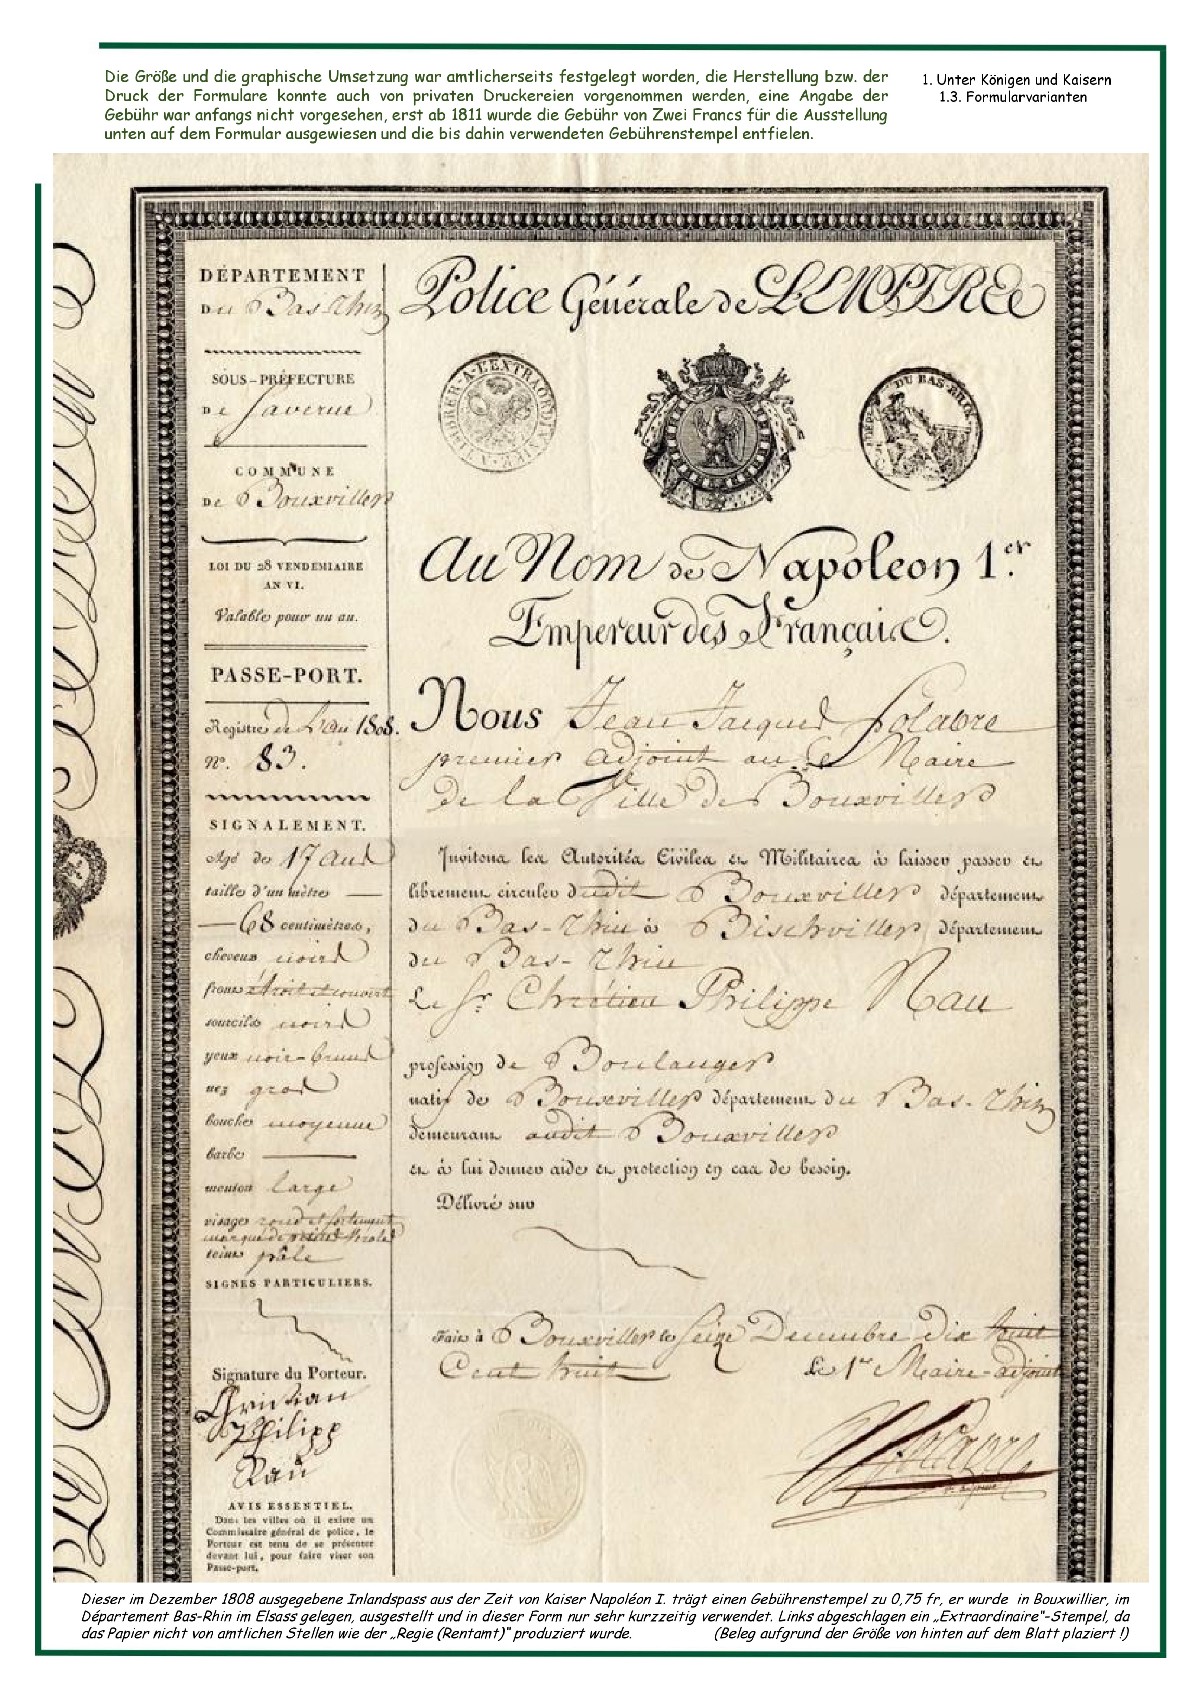 Die Größe und die graphische Umsetzung war amtlicherseits festgelegt worden, die Herstellung bzw. der
Druck der Formulare konnte auch von privaten Druckereien vorgenommen werden, eine Angabe der
Gebühr war anfangs nicht vorgesehen, erst ab 1811 wurde die Gebühr von Zwei Francs für die Ausstellung
unten auf dem Formular ausgewiesen und die bis dahin verwendeten Gebührenstempel entfielen.
1. Unter Königen und Kaisern
1.3. Formularvarianten
DÉPARTEMENT
Du Bas-Rhin
SOUS-PRÉFECTURE
DE Saverne
COMMUNE
DE Bouxviller
LOI DU 28 VENDEMIAIRE
AN VI.
Valable pour un an.
PASSE-PORT.
Registre de L'an 1808.
N°. 83.
SIGNALEMENT.
Agé de 17 ans
taille d'un mètre
68 centimètres,
cheveux noirs
front étroit et couvert
sourcils noirs
yeux noir-bruns
nez gros
bouche moyenne
barbe
menton large
visage rond et fortement
marqué de petite verole
teint pâle
SIGNES PARTICULIERS.
Signature du Porteur.
Christian
Philipp
Nau
AVIS ESSENTIEL.
Dans les villes où il existe un
Commissaire général de police, le
Porteur est tenu de se présenter
devant lui, pour faire viser son
Passe-port.
Police Générale de L'EMPIRE
A TIMBRER A L'EXTRAORDINAIRE
DU BAS-RHIN
Au Nom de Napoleon 1.er
Empereur des Français.
Nous Jean Jacques
premier adjoint au Maire
de la Ville de Bouxviller
Invitons les Autorités Civiles et Militaires à laisser passer et
librement circuler dudit Bouxviller département
du Bas-Rhin à Bischviller département
du Bas-Rhin
Le Sr Chrétien Philippe Nau
profession de Boulanger
natif de Bouxviller département du Bas-Rhin
demeurant audit Bouxviller
et à lui donner aide et protection en cas de besoin.
Délivré sur
Fait à Bouxviller le Seize Decembre dix huit
Cent huit Le 1er Maire-adjoint
Dieser im Dezember 1808 ausgegebene Inlandspass aus der Zeit von Kaiser Napoléon I. trägt einen Gebührenstempel zu 0,75 fr, er wurde in Bouxwillier, im
Département Bas-Rhin im Elsass gelegen, ausgestellt und in dieser Form nur sehr kurzzeitig verwendet. Links abgeschlagen ein „Extraordinaire“-Stempel, da
das Papier nicht von amtlichen Stellen wie der „Regie (Rentamt)“ produziert wurde. (Beleg aufgrund der Größe von hinten auf dem Blatt plaziert !)